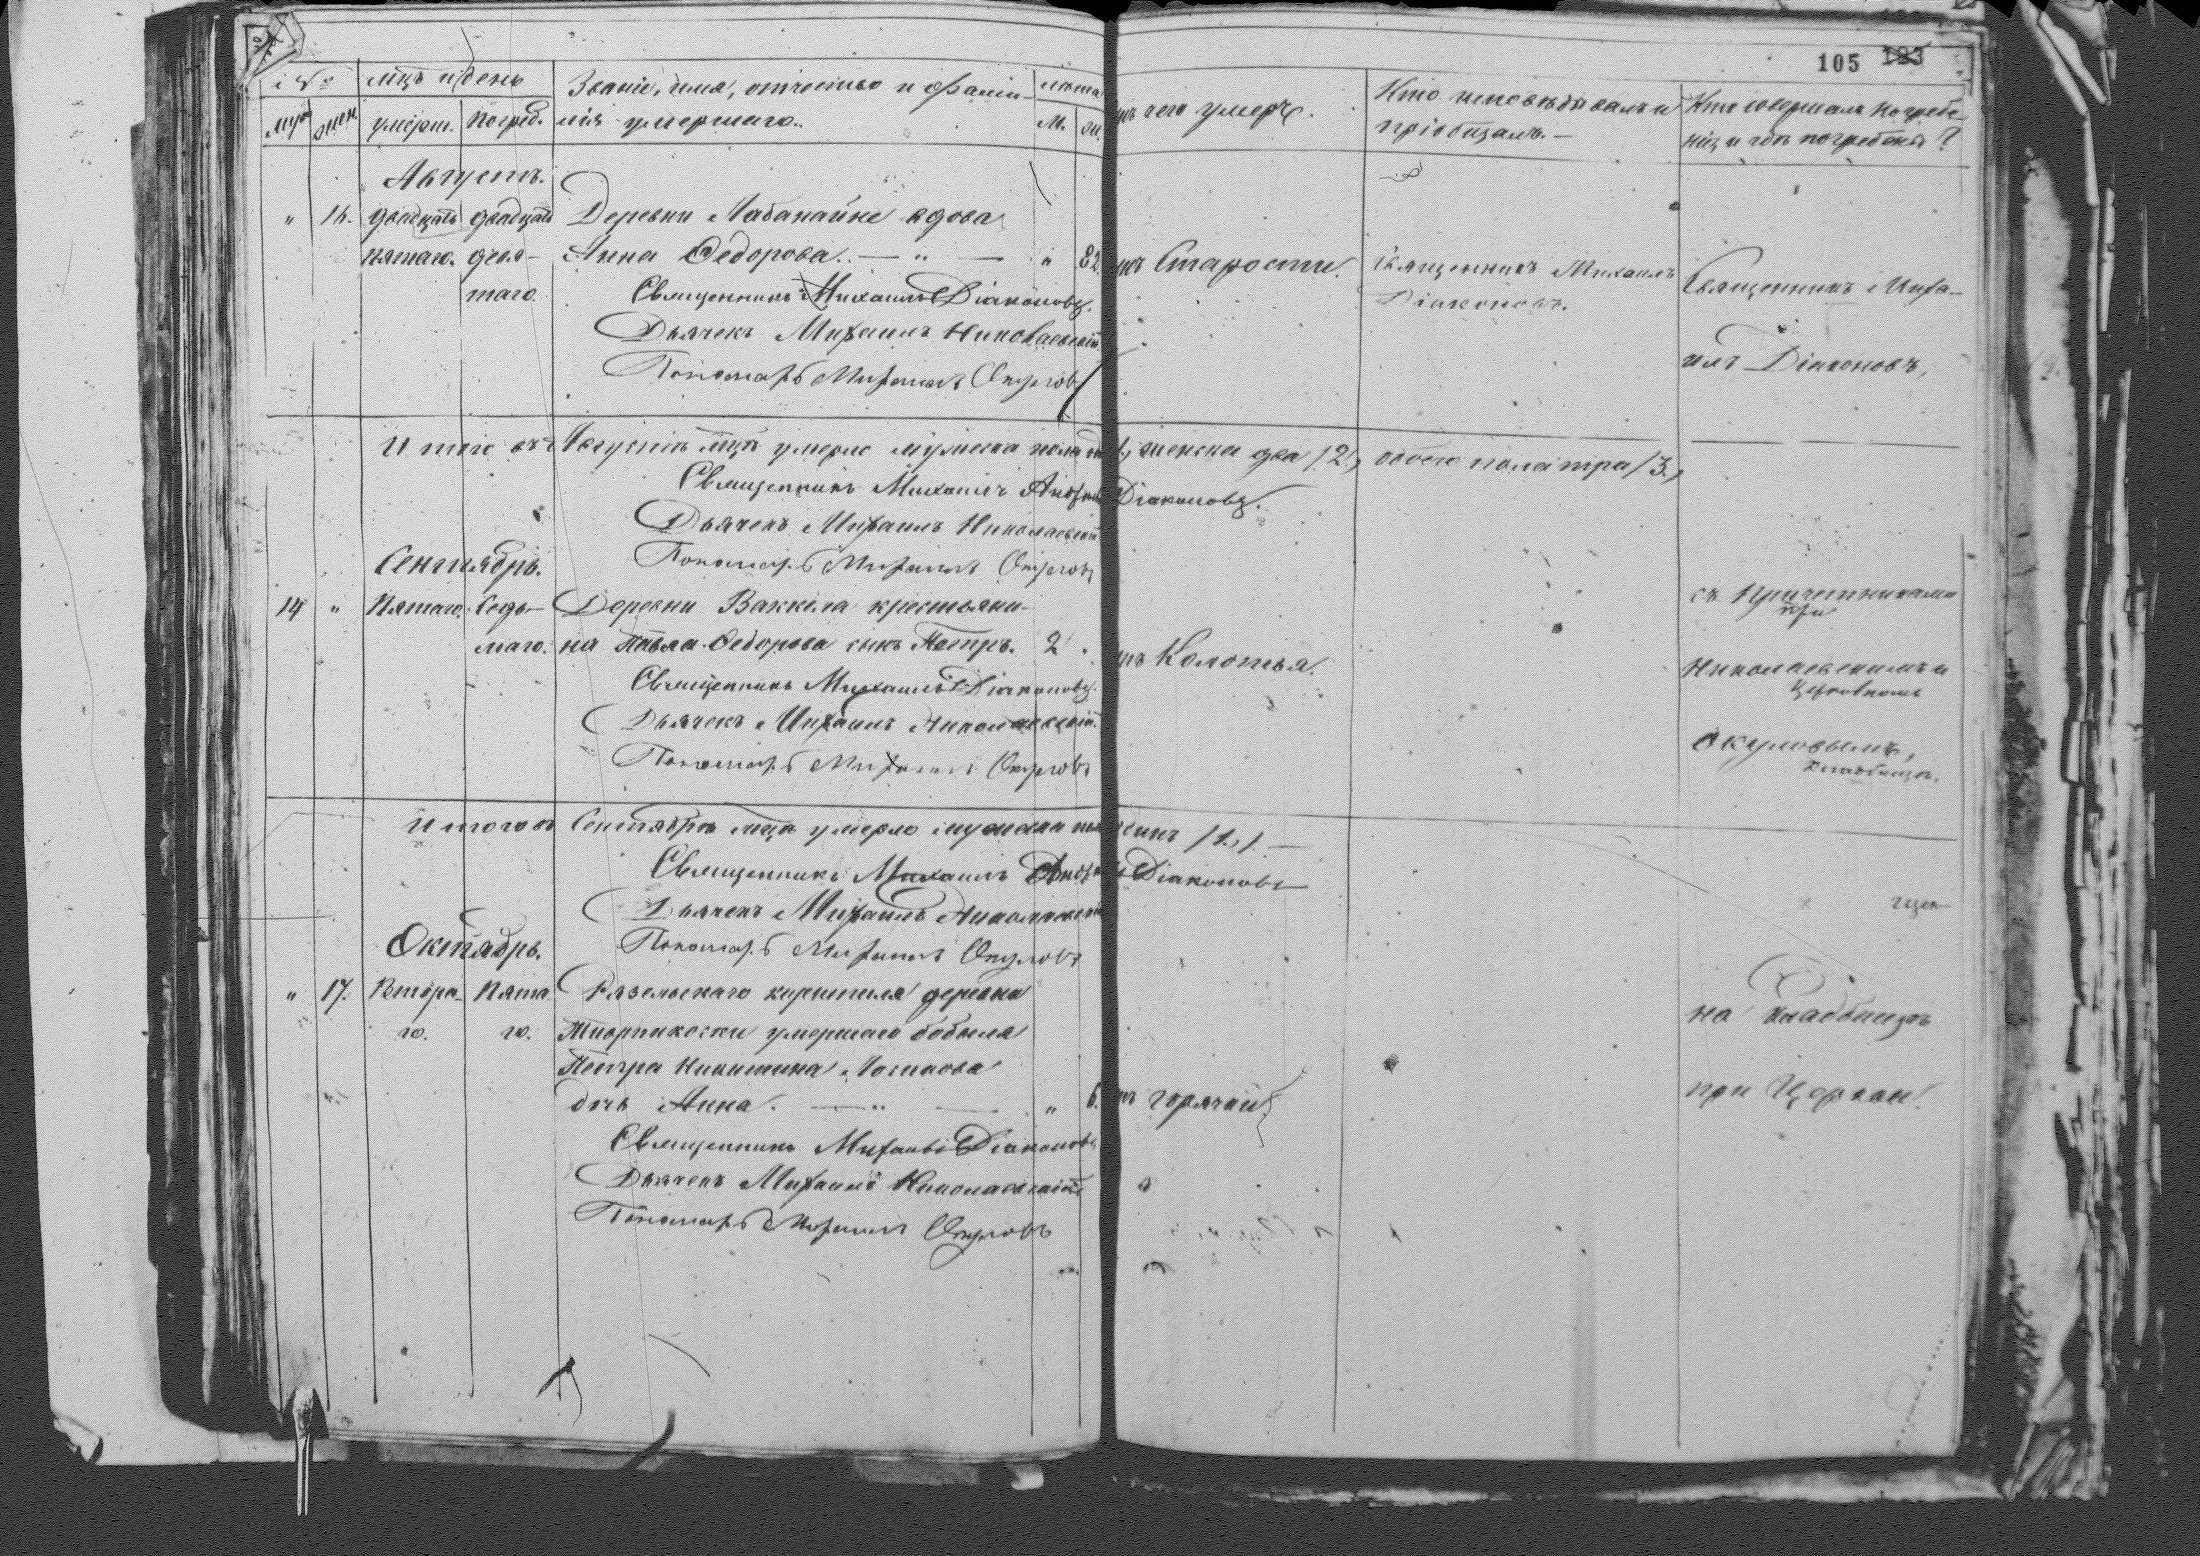 105 123
№ мцъ и день Званіе, имя, отчество и фами- лѣта
муж жен умерш. погреб. лія умершаго. м. ж.
отъ чего умеръ. Кто исповѣдывалъ и пріобщалъ.— Кто совершалъ погребе-
ніе, и гдѣ погребены?
Августъ.
" 16. двадцать двадцать Деревни вдова
пятаго. девя- Анна Ѳедорова. — " — " 82. отъ Старости. Священникъ Михаилъ Священникъ Миха-
таго. Священникъ Михаилъ Діаконовъ. Діаконовъ.
Дьячекъ Михаилъ Николаевскій илъ Діаконовъ,
Пономарь Михаилъ Окуловъ
Итого въ Августѣ мцѣ умерло мужеска пола , женска два /2/, обоего пола три /3/,
Священникъ Михаилъ Діаконовъ.
Дьячекъ Михаилъ Николаевскій
Сентябрь. Пономарь Михаилъ Окуловъ
съ Причетниками
при
14 " Пятаго. Седь- Деревни Ваккила крестьяни-
маго. на Павла Ѳедорова сынъ Петръ. 2 . отъ Колотья. Николаевскимъ и
Священникъ Михаилъ Діаконовъ. Церковномъ
Дьячекъ Михаилъ Николаевскій. Окуловымъ,
Пономарь Михаилъ Окуловъ Кладбищѣ.
Итого въ Сентябрѣ мцѣ умерло мужеска пола одинъ /1./ —
Священникъ Михаилъ Діаконовъ
Дьячекъ Михаилъ Николаевскій
Октябрь. Пономарь Михаилъ Окуловъ
" 17. Втора- Пята деревни на Кладбищѣ
го. го. умершаго бобыля
Петра Никитина
дочь Анна. — " — " 6. отъ горячки при Церкви.
Священникъ Михаилъ Діаконовъ
Дьячекъ Михаилъ Николаевскій
Пономарь Михаилъ Окуловъ